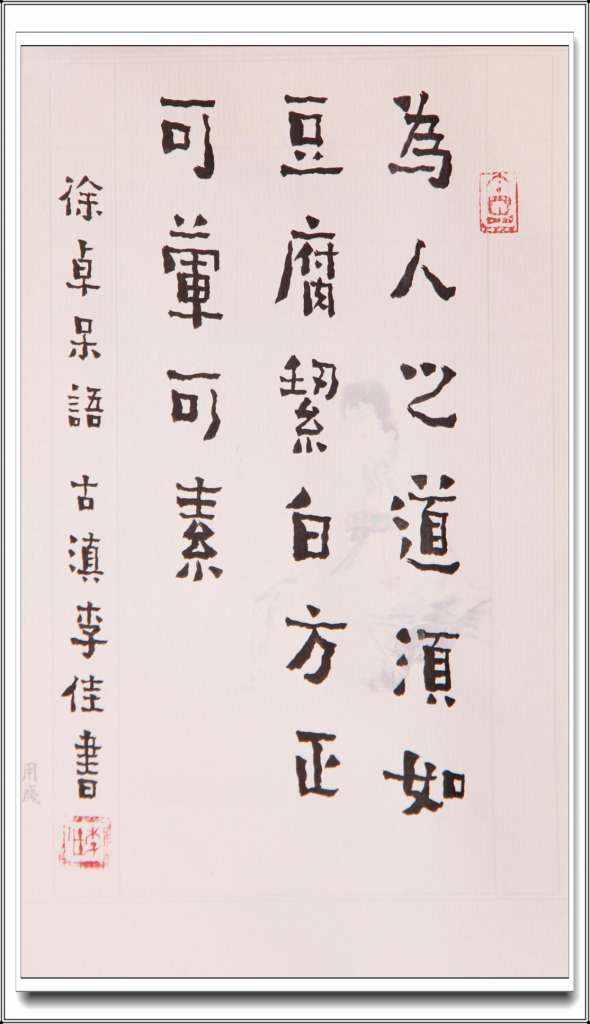 為人之道湏如
豆腐絜白方正
可葷可素
徐卓呆語 古滇李佳書
李佳